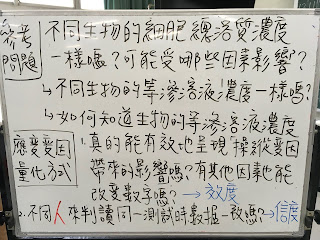 參考問題
不同生物的細胞線溶質濃度
一樣嗎？可能受哪些因素影響？
↳不同生物的等滲溶液濃度一樣嗎？
↳如何知道生物的等滲溶液濃度
應變變因量化方式
1.真的能有效地呈現「操縱變因
帶來的影響嗎？有其他因素也能
改變數字嗎？→效度
2.不同人來判讀同一測試時數據一致嗎？→信度